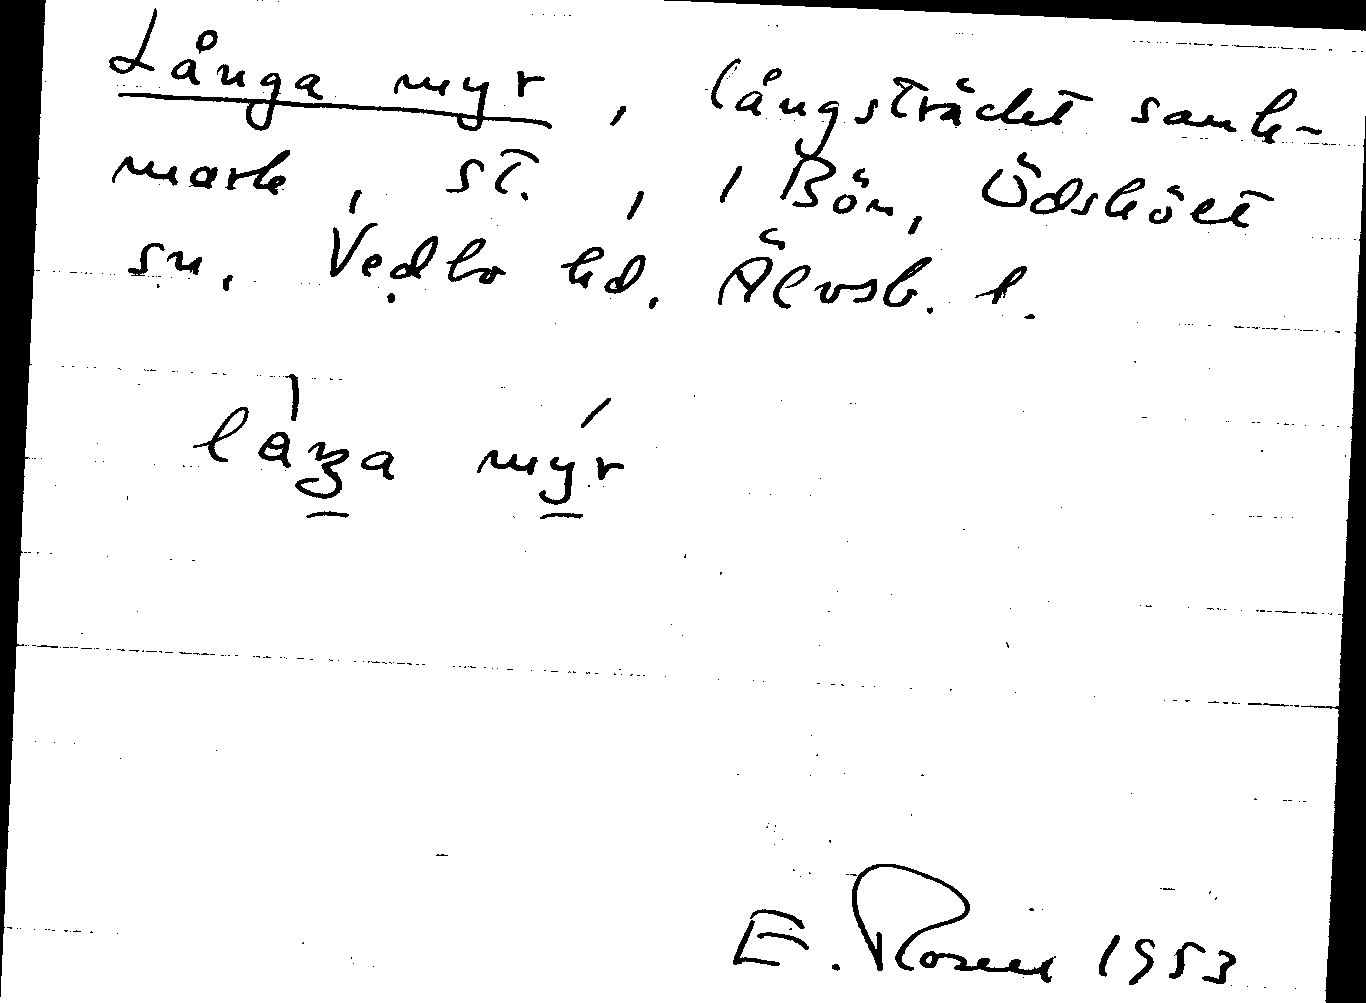 Långa myr, långsträckt sank-
mark, st., i Bön, Ödskölt
sn. Vedbo hd. Älvsb. l.
låŋa mýr
E. Rosell 1953